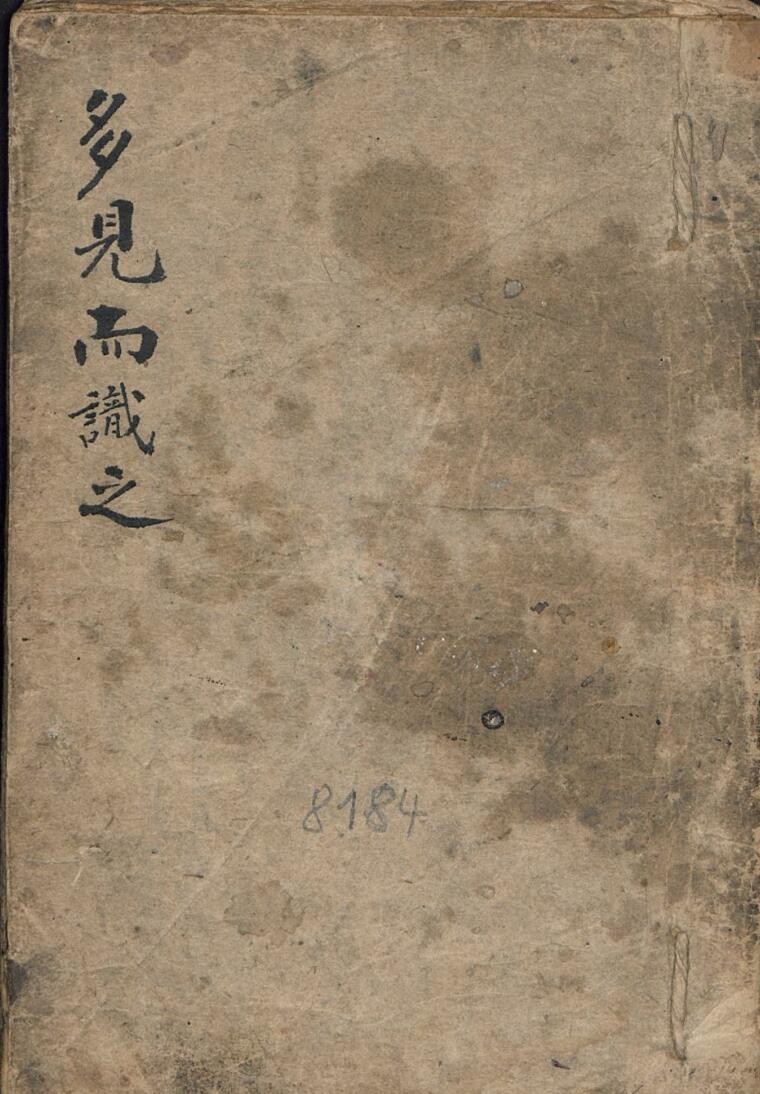 多見而識之
8184